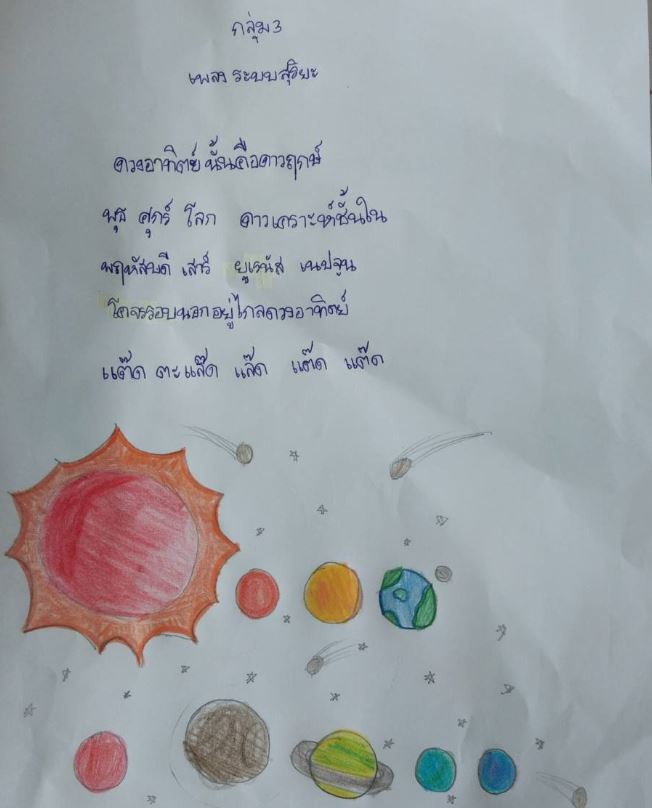 กลุ่ม3
เพลง ระบบสุริยะ
ดวงอาทิตย์ นั้นคือดาวฤกษ์
พุธ ศุกร์ โลก ดาวเคราะห์ชั้นใน
พฤหัสบดี เสาร์ ยูเรนัส เนปจูน
โคจรรอบนอกอยู่ไกลดวงอาทิตย์
แต๊ด ตะแล๊ด แล๊ด แต๊ด แต๊ด